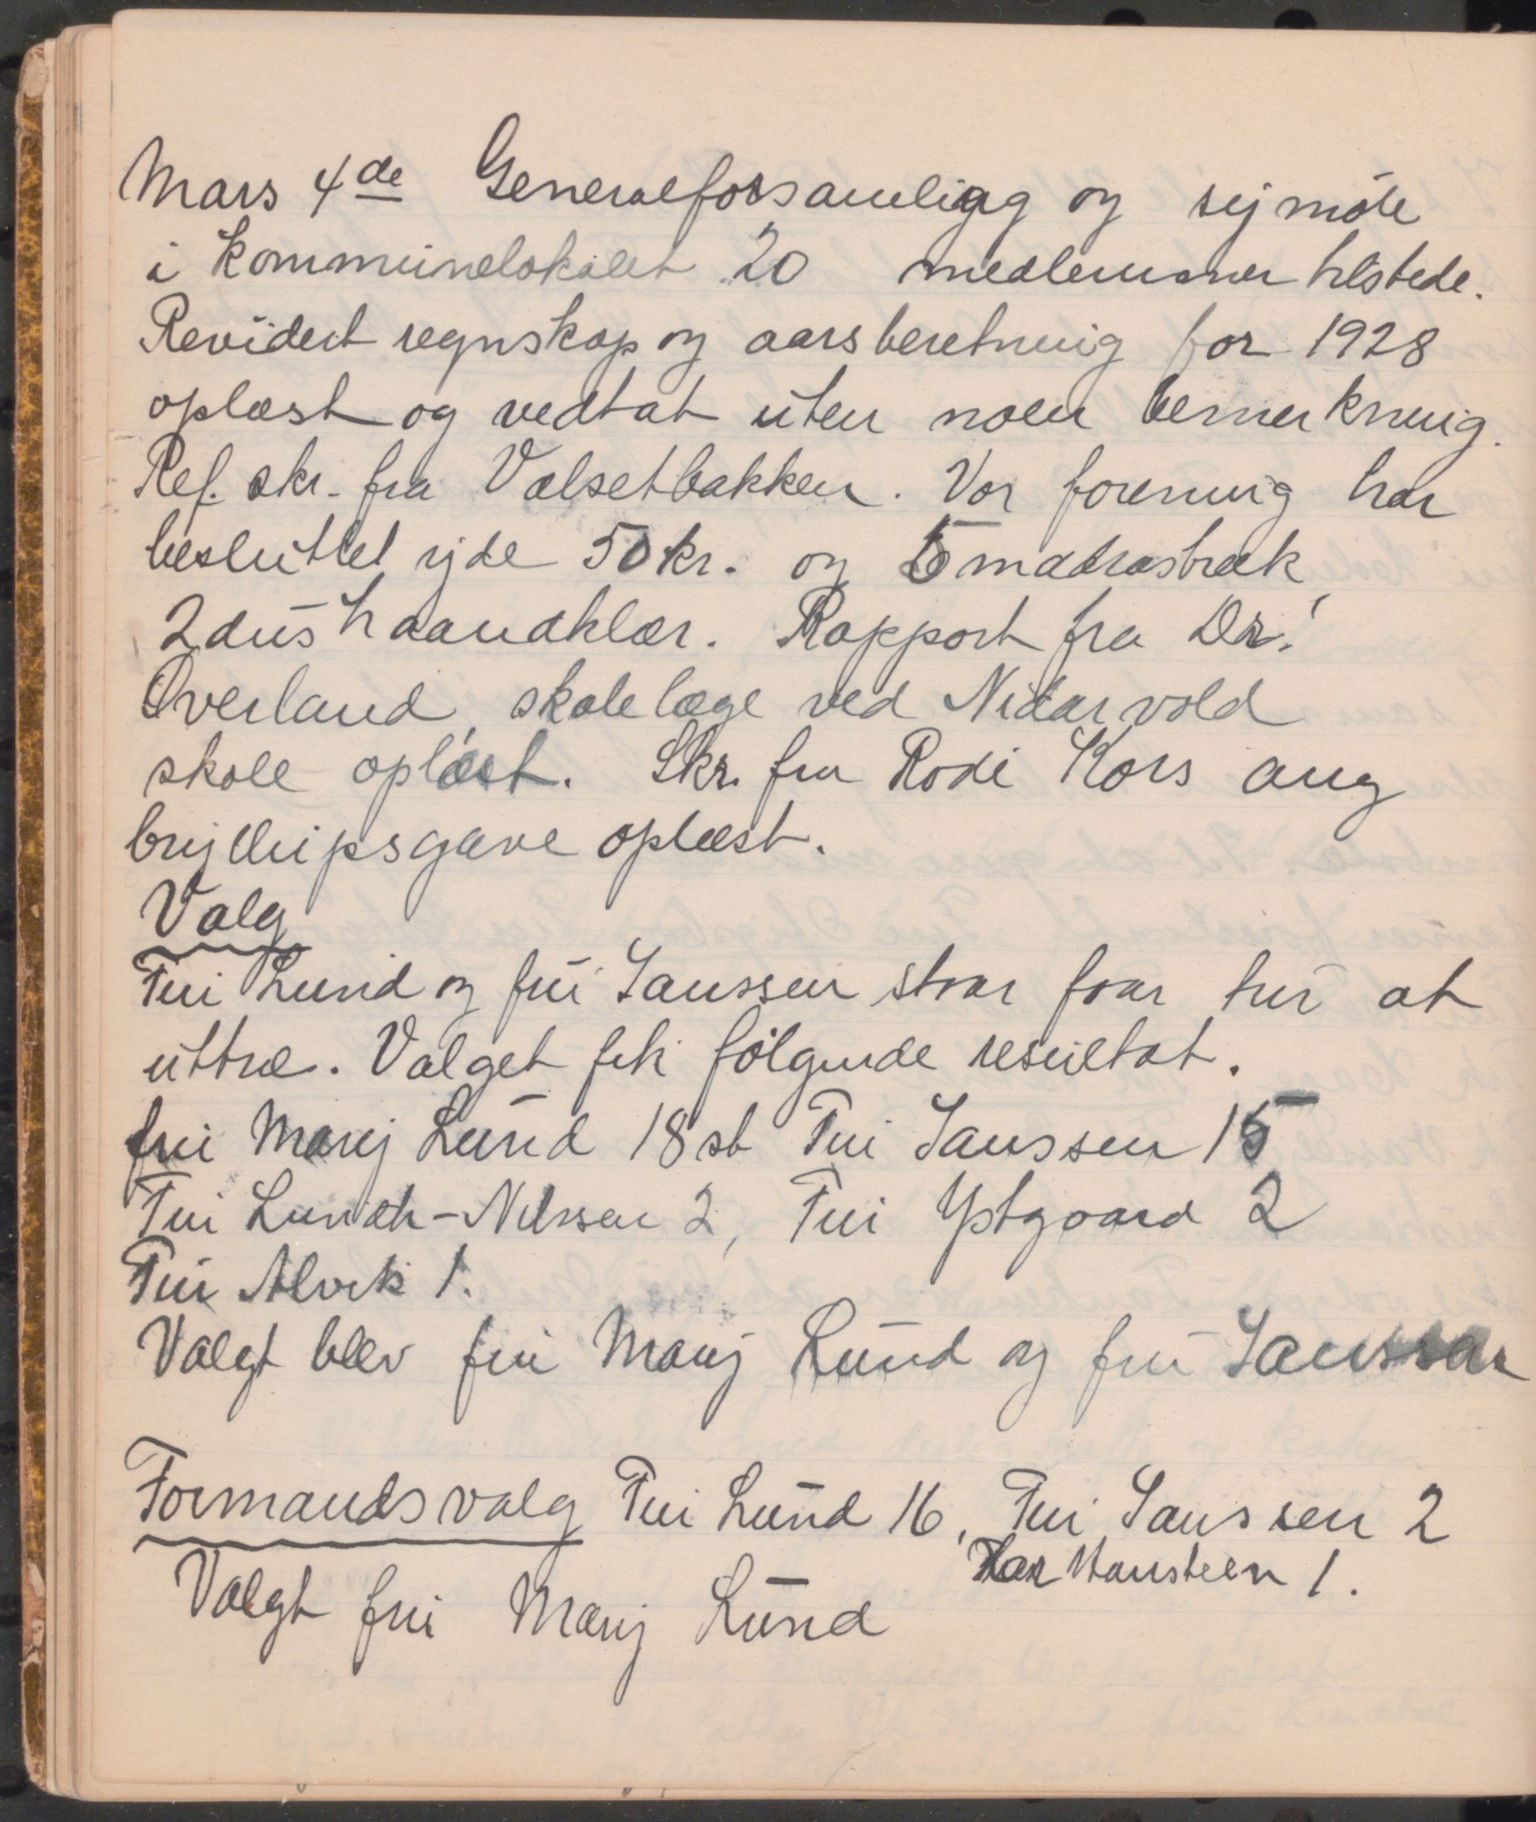 Mars 4de Generalforsamling og symöte
i kommunelokalet 20 medlemmer tilstede.
Revidert regnskap og aarsberetning for 1928
oplæst og vedtat uten noen bemerkning.
Ref. skr. fra Valsetbakken. Vor forening har
besluttet yde 50 kr. og 5 madrastræk,
2 dus haandklær. Rapport fra Dr.
Överland, skolelæge ved Nidarvold
skole oplæst. Skr. fra Rode Kors ang
bryllupsgave oplæst.
Valg
Fru Lund og fru Janssen staar foar tur at
uttræ. Valget fik følgende resultat.
fru Mary Lund 18 st Fru Janssen 15
Fru Lundh-Nilssen 2, Fru Ystgaard 2
Fru Alvik 1.
Valgt blev fru Mary Lund og fru Janssen
Formandsvalg Fru Lund 16, Fru Janssen 2
Hansteen 1.
Valgt fru Mary Lund